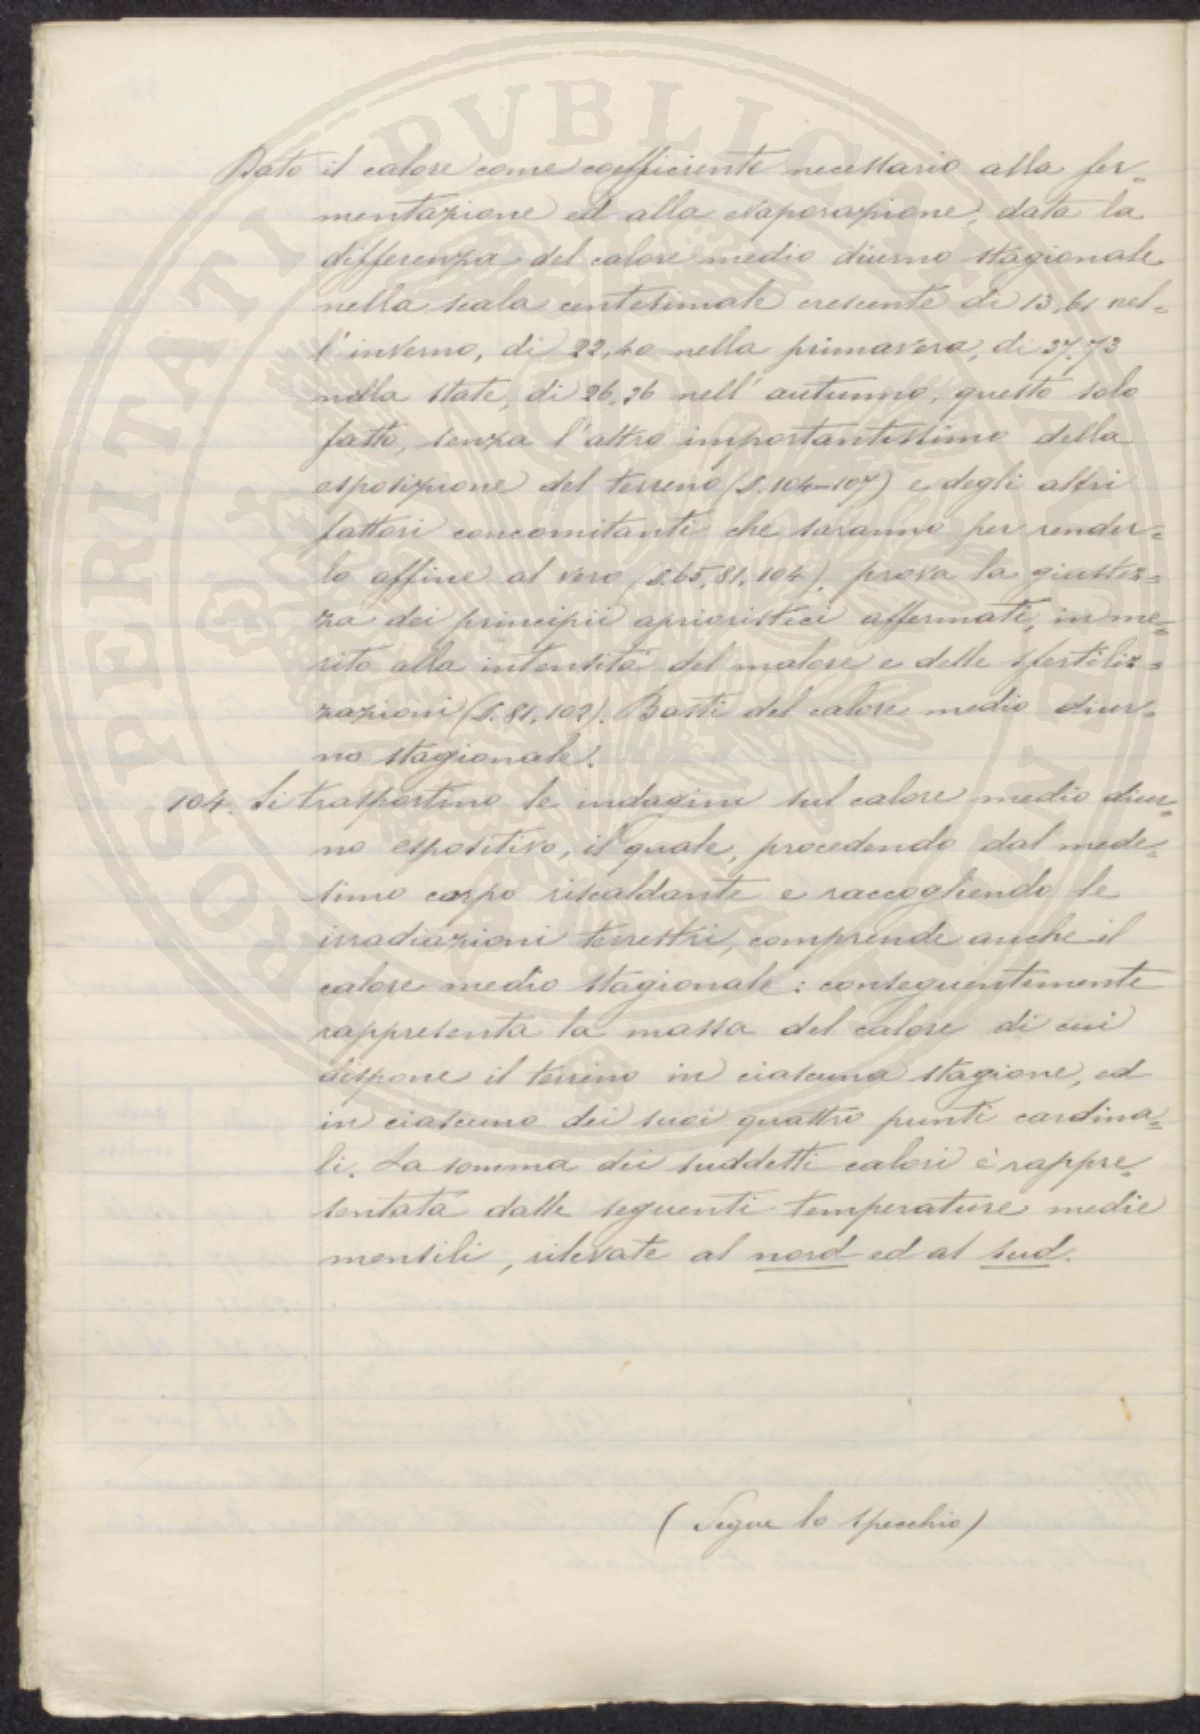 Dato il calore come coefficiente necessario alla fer-
mentazione ed alla evaporazione, data la
differenza del calore medio diurno stagionale
nella scala centesimale crescente di 13,61 nel-
l'inverno, di 22,40 nella primavera, di 37,73
nella state, di 26,26 nell'autunno, questo solo
fatto, senza l'altro importantissimo della
esposizione del terreno (§. 104-107) e degli altri
fattori concomitanti che saranno per render-
lo affine al vero (§. 65, 81, 104), prova la giustez-
za dei principii aprioristici affermati, in me-
rito alla intensità del malore e delle sfertiliz-
zazioni (§. 81, 102). Basti del calore medio diur-
no stagionale.
104. Si trasportino le indagini sul calore medio diur-
no espositivo, il quale, procedendo dal mede-
simo corpo riscaldante e raccogliendo le
irradiazioni terrestri, comprende anche il
calore medio stagionale: conseguentemente
rappresenta la massa del calore di cui
dispone il terreno in ciascuna stagione, ed
in ciascuno dei suoi quattro punti cardina-
li. La somma dei suddetti calori è rappre-
sentata dalle seguenti temperature medie
mensili, rilevate al nord ed al sud.
(Segue lo specchio)
PROSPERITATI PVBLICAE